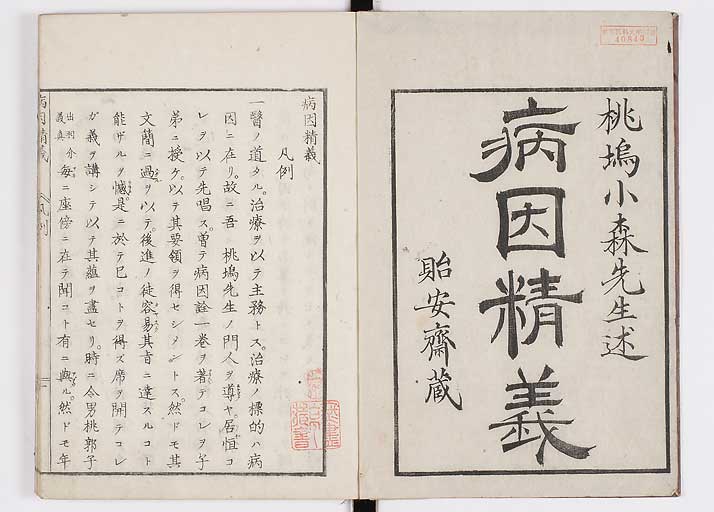 桃塢小森先生述
病因精義
貽安齋蔵
病因精義
凡例
一醫ノ道タル。治療ヲ以テ主務トス。治療ノ標的ハ病
因ニ在リ。故ニ吾 桃塢先生ノ門人ヲ導ヤ。居恒コ
レヲ以テ先唱ス。曽テ病因詮一巻ヲ著テコレヲ子
弟ニ授ケ。以テ其要領ヲ得セシメントス。然ドモ其
文簡ニ過ヲ以テ。後進ノ徒容易其旨ニ達スルコト
能ザルヲ憾。是ニ於テ已コトヲ得ズ席ヲ開テコレ
ガ義ヲ講シテ以テ其蘊ヲ盡セリ。時ニ令男桃郭子
毎ニ座傍ニ在テ聞コト有ニ與ル。然ドモ年
病因精義
凡例
40843